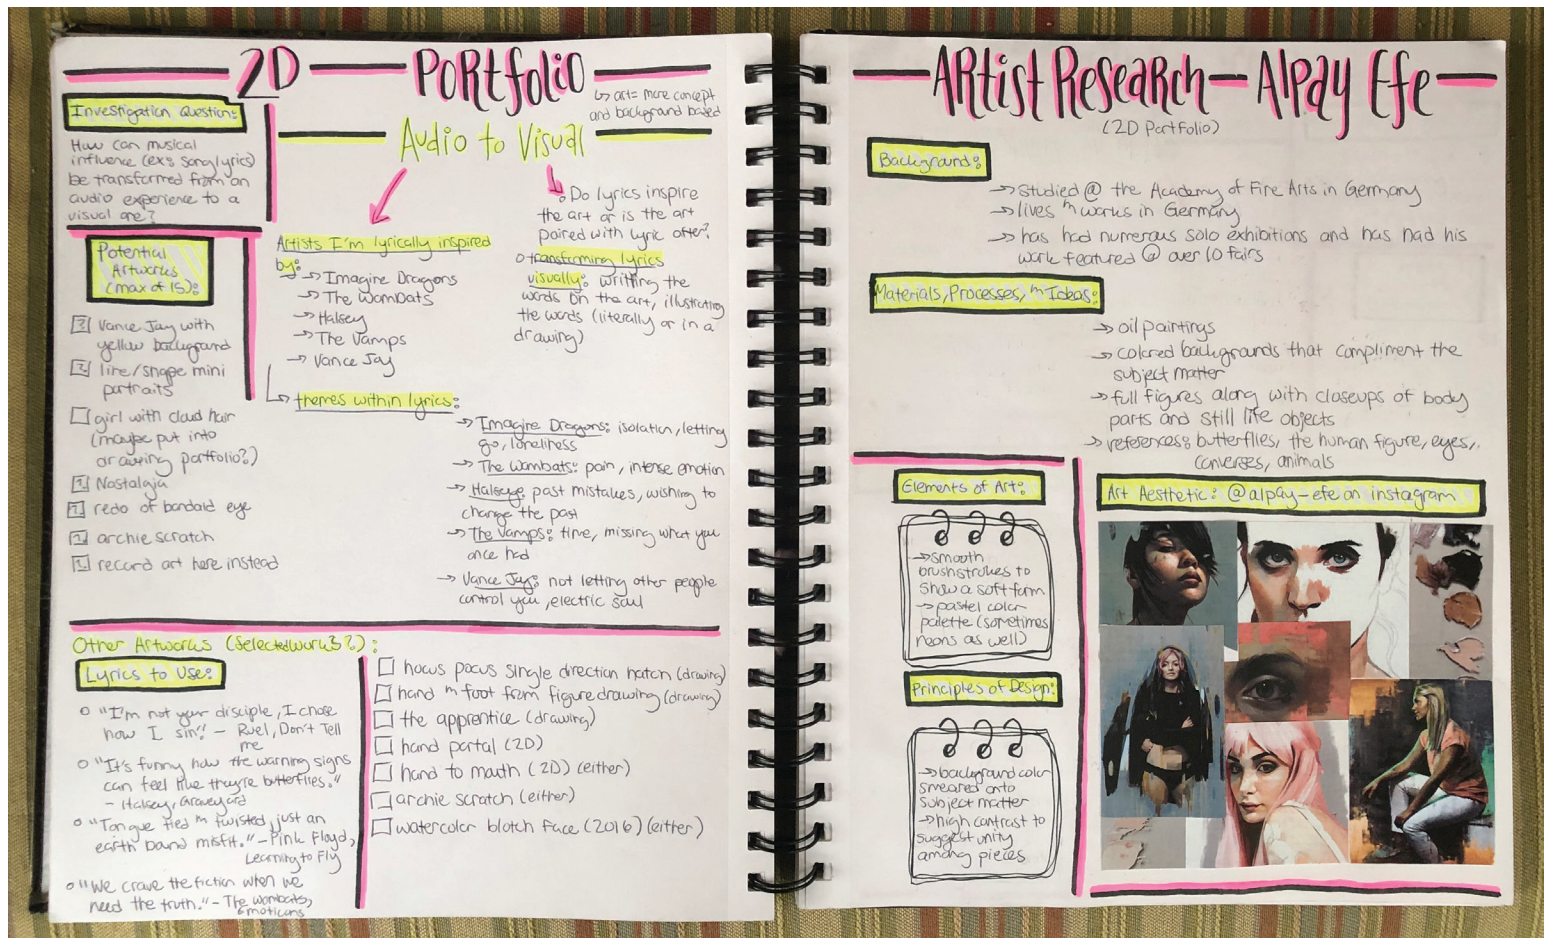 2D PORTFOLIO
↳ art = more concept
and background based
Investigation Question:
How can musical
influence (ex: song lyrics)
be transformed from an
audio experience to a
visual one?
Audio to Visual
Potential
Artworks
(max of 15):
Vance Jay with
yellow background
line/shape mini
portraits
girl with cloud hair
(maybe put into
drawing portfolio?)
Nostalgia
redo of bandaid eye
archie scratch
record art here instead
Artists I'm lyrically inspired
by:
→ Imagine Dragons
→ The Wombats
→ Halsey
→ The Vamps
→ Vance Jay
Do lyrics inspire
the art or is the art
paired with lyric after?
transforming lyrics
visually: writting the
words on the art, illustrating
the words (literally or in a
drawing)
themes within lyrics:
→ Imagine Dragons: isolation, letting
go, loneliness
→ The Wombats: pain, intense emotion
→ Halsey: past mistakes, wishing to
change the past
→ The Vamps: time, missing what you
once had
→ Vance Jay: not letting other people
control you, electric soul
Other Artworks (Selected Works?):
Lyrics to Use:
"I'm not your disciple, I chose
how I sin" - Ruel, Don't Tell
me
"It's funny how the warning signs
can feel like they're butterflies."
- Halsey, Graveyard
"Tongue tied n twisted, just an
earth bound misfit." - Pink Floyd,
Learning to Fly
"We crave the fiction when we
need the truth." - The wombats,
emoticons
hocus pocus single direction hatch (drawing)
hand n foot from figure drawing (drawing)
the apprentice (drawing)
hand portal (2D)
hand to mouth (2D) (either)
archie scratch (either)
watercolor blotch face (2016) (either)
ARTist Research - Alpay Efe
(2D Portfolio)
Background:
→ studied @ the Academy of Fine Arts in Germany
→ lives n works in Germany
→ has had numerous solo exhibitions and has had his
work featured @ over 10 fairs
Materials, Processes, n Ideas:
→ oil paintings
→ colored backgrounds that compliment the
subject matter
→ full figures along with closeups of body
parts and still life objects
→ references: butterflies, the human figure, eyes,
converses, animals
Elements of Art:
→ smooth
brushstrokes to
show a soft form
→ pastel color
palette (sometimes
neons as well)
Principles of Design:
→ background color
smeared onto
subject matter
→ high contrast to
suggest unity
among pieces
Art Aesthetic: @alpay-efe on instagram